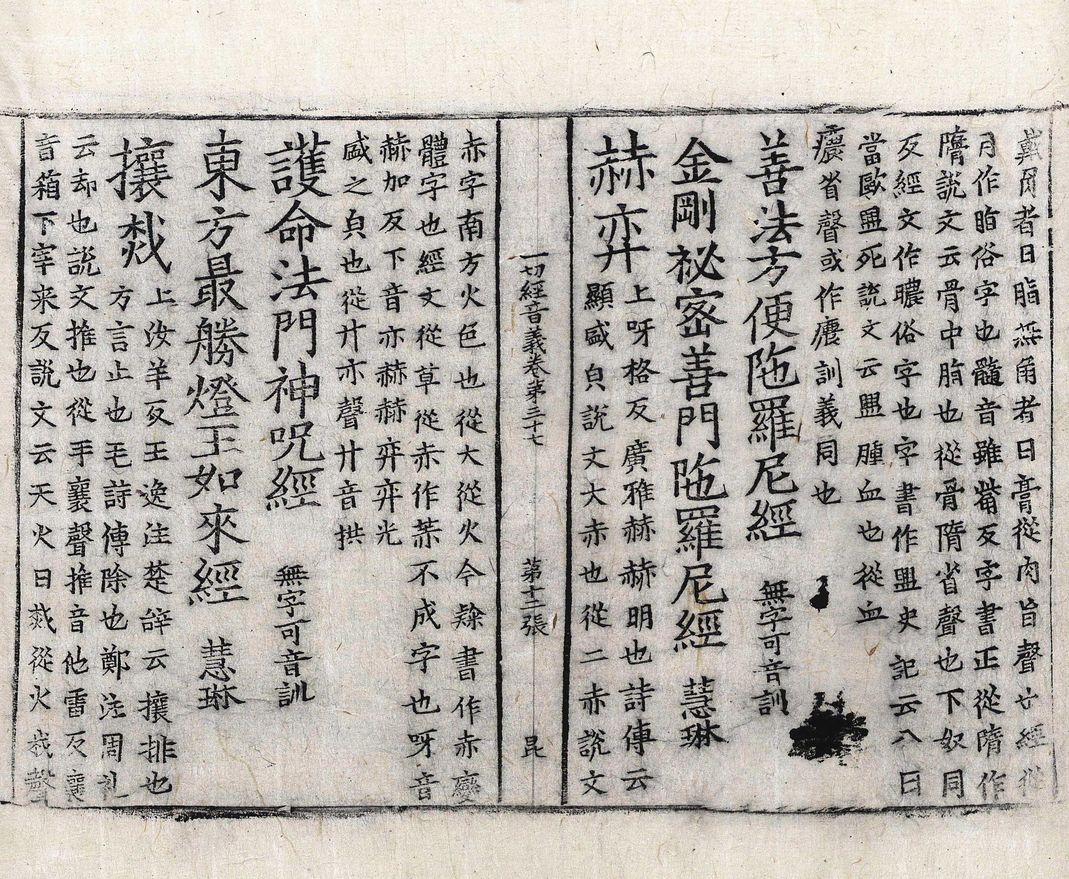 戴角者曰脂無角者曰膏從肉旨聲也經從
月作脂俗字也髓音雖觜反字書正從隋作
隋說文云骨中脂也從骨隋省聲也下奴同
反經文作膿俗字也字書作盥史記云八日
當歐盥死說文云盥腫血也從血
癑省聲或作癑訓義同也
善法方便陁羅尼經 無字可音訓
金剛祕密善門陁羅尼經 慧琳
赫弈 上呀格反廣雅赫赫明也詩傳云
顯盛皃說文大赤也從二赤說文
赤字南方火色也從大從火今隸書作赤變
體字也經文從草從赤作𦱅不成字也呀音
赫加反下音亦赫赫弈弈光
盛之皃也從廾亦聲廾音拱
一切經音義卷第三十七 第十二張 昆
護命法門神呪經 無字可音訓
東方最勝燈王如來經 慧琳
攘烖 上汝羊反王逸注楚辭云攘排也
方言止也毛詩傳除也鄭注周礼
云却也說文推也從手襄聲推音他雷反襄
音箱下宰来反說文云天火曰烖從火𢦏聲